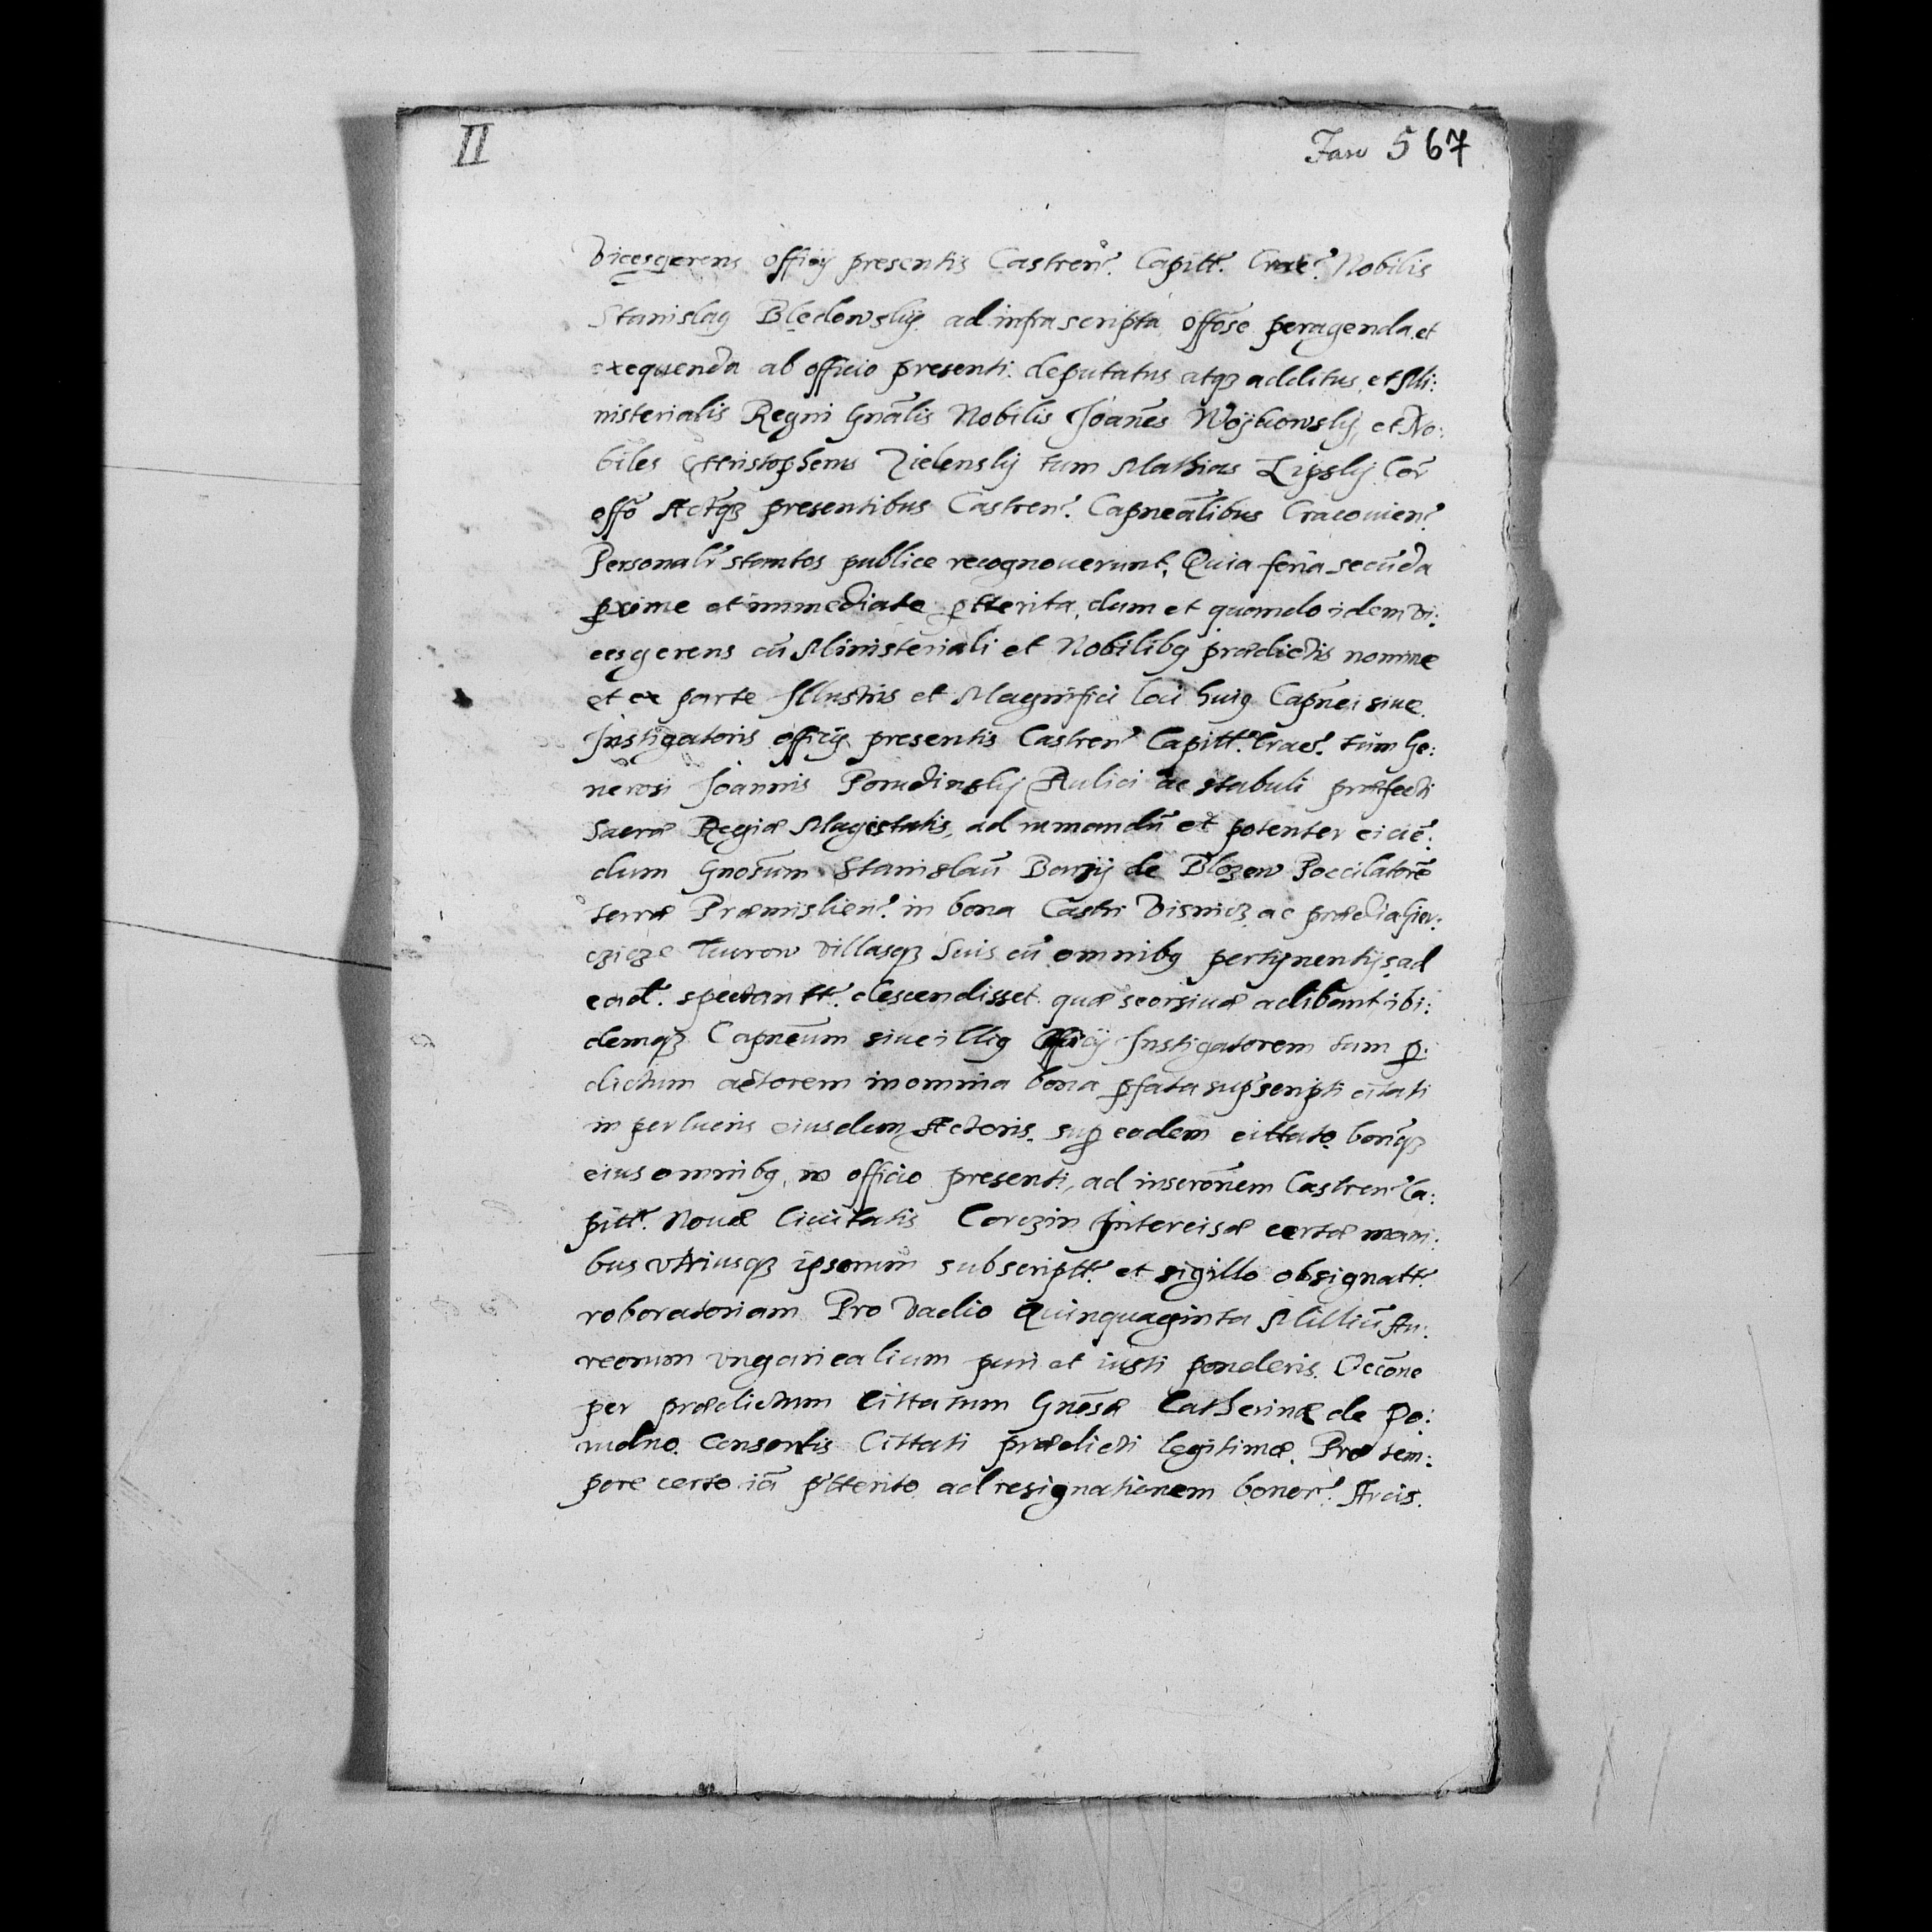 II
Fasc 5 67
Vicesgerens officÿ presentis Castren. Capitt. Crac. Nobilis
Stanislaꝰ Blędowskÿ ad infrascripta offōse peragenda et
exequenda ab officio presenti deputatus atqꝫ additus, et Mi:
nisterialis Regni Gnãlis Nobilis Joanẽs Woÿkowskÿ, et No:
biles Christophorus Zielenskÿ tum Mathias Lipskÿ Cor̃
offõ Actisqꝫ presentibus Castren. Capneãlibus Cracouien.
Personalr̃ stantes publice recognouerunt, Quia feria secũda
ꝓxime et immediate p̱tterita, dum et quando idem Vi:
cesgerens cũ Ministeriali et Nobilibꝰ prædictis nomine
et ex parte Illustris et Magnifici loci huiꝰ Capnei siue
Instigatoris officÿ presentis Castren. Capitt. Crac. tum Ge:
nerosi Joannis Porudinskÿ Aulici ac stabuli præfecti
Sacræ Regiæ Magestatis, ad rumandũ et potenter eiiciẽ:
dum Gnosum Stanislaũ Borzÿ de Blozew Poccilatorẽ
terræ Præmislien. in bona Castri Visnicz ac prædia Gier:
czicze Leuron Villasqꝫ Suis cũ omnibꝰ pertÿnentÿs ad
ead. spectantt. descendisset quæ seorsiuæ adibant ibi:
demqꝫ Capneũm siue illiꝰ Officÿ Instigatorem tum p̱:
dictum actorem in omnia bona p̱fata supscripti citati
in per lucris eiusdem Actoris sup̱ eodem cittato bonisqꝫ
eius omnibꝰ, in officio presenti, ad inscrõnem Castren. Ca:
pitt. Nouæ Ciuitatis Corczin Intercisæ certæ mani:
bus vtriusqꝫ ipsorum subscriptt. et sigillo obsignatt.
roboratoriam Pro Vadio Quinquaginta Milliũ Au:
reorum vngaricalium puri et iusti ponderis. Occõne
per prædictum Cittatum Gnõsæ Catherinæ de Po:
rudno Consortis Cittati prædicti legitimæ. Pro tem:
pore certo iã pꝰtterito ad resignationem bonor. Arcis.